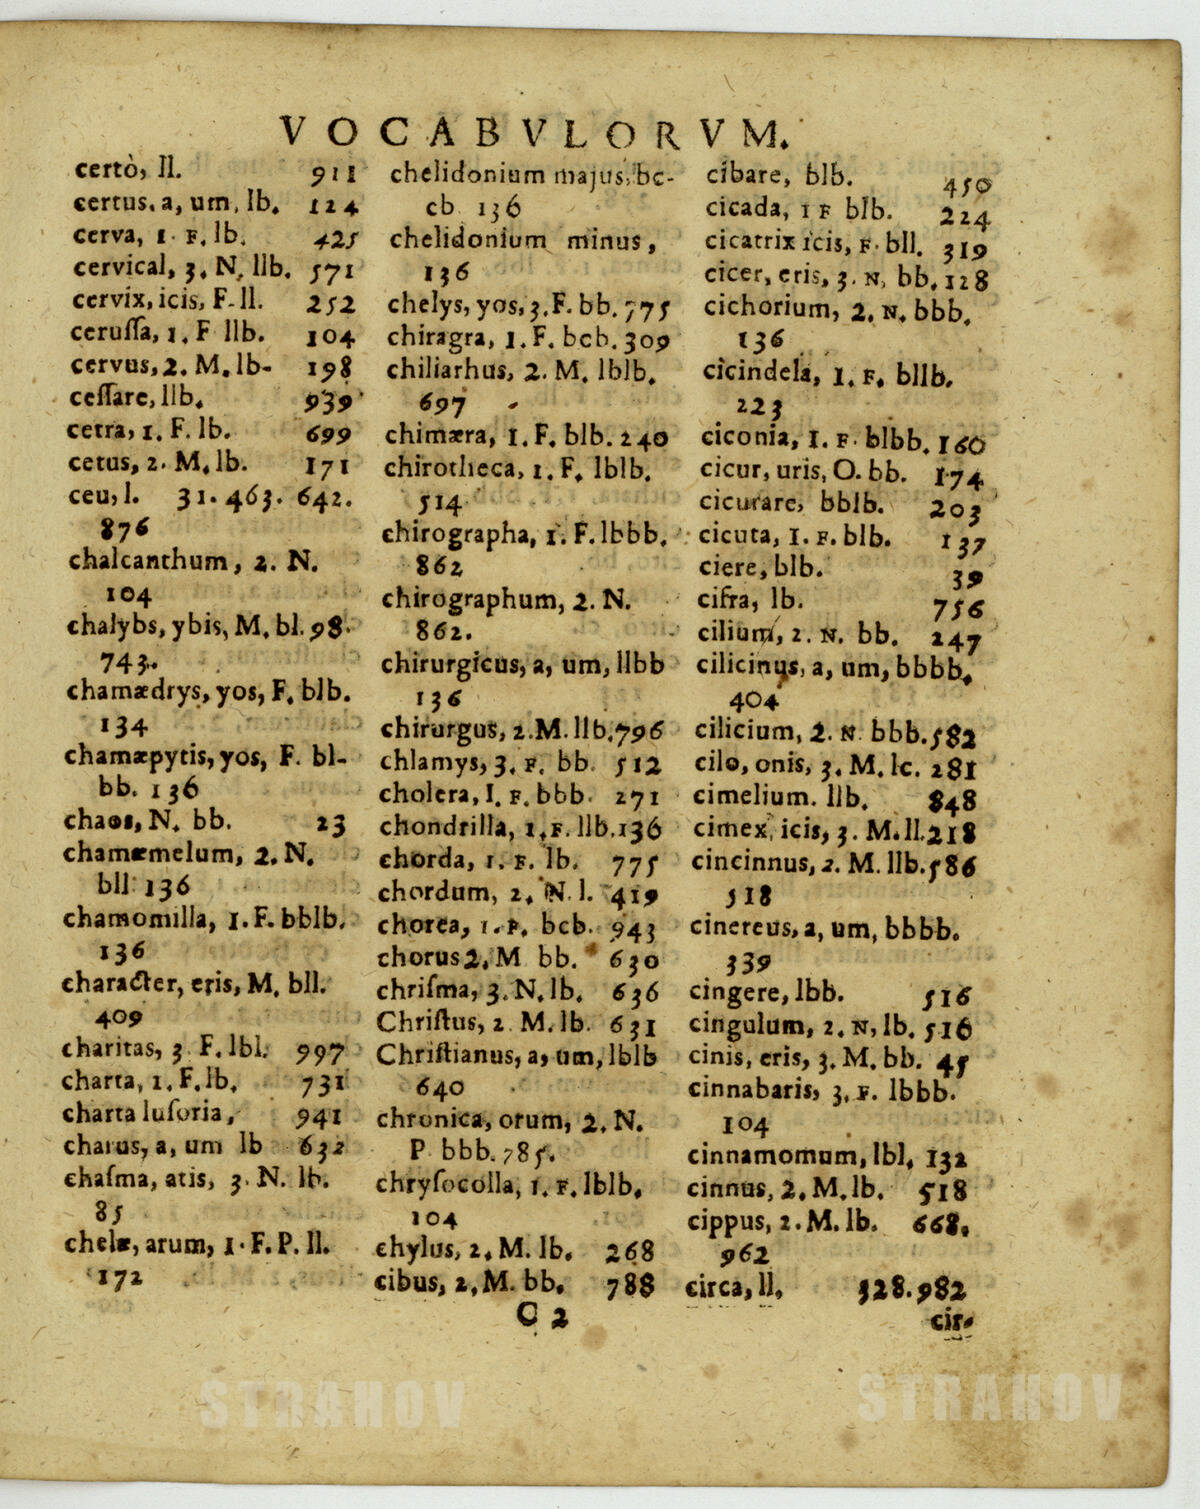 VOCABVLORVM.
certò, ll. 911
certus, a, um, lb. 124
cerva, 1. F. lb. 425
cervical, 3. N. llb. 571
cervix, icis, F. ll. 252
ceruſſa, 1. F llb. 104
cervus, 2. M. lb- 198
ceſſare, llb. 939
cetra, 1. F. lb. 699
cetus, 2. M. lb. 171
ceu, l. 31. 463. 642.
876
chalcanthum, 2. N.
104
chalybs, ybis, M. bl. 98.
743.
chamædrys, yos, F. blb.
134
chamæpytis, yos, F. bl-
bb. 136
chaos, N. bb. 23
chamæmelum, 2. N.
bll 136
chamomilla, 1. F. bblb.
136
character, eris, M. bll.
409
charitas, 3 F. lbl. 997
charta, 1. F. lb. 731
charta luſoria, 941
charus, a, um lb 632
chaſma, atis, 3. N. lb.
85
chelæ, arum, 1. F. P. ll.
172
chelidonium majus, bc-
cb 136
chelidonium minus,
136
chelys, yos, 3. F. bb. 775
chiragra, 1. F. bcb. 309
chiliarhus, 2. M. lblb.
697
chimæra, 1. F. blb. 240
chirotheca, 1. F. lblb.
514
chirographa, 1. F. lbbb.
862
chirographum, 2. N.
862.
chirurgicus, a, um, llbb
136
chirurgus, 2. M. llb. 796
chlamys, 3. F. bb. 512
cholera, I. F. bbb. 271
chondrilla, 1. F. llb. 136
chorda, 1. F. lb. 775
chordum, 2. N. l. 419
chorea, 1. F. bcb. 943
chorus 2. M bb. 630
chriſma, 3. N. lb. 636
Chriſtus, 2 M. lb. 631
Chriſtianus, a, um, lblb
640
chronica, orum, 2. N.
P bbb. 785.
chryſocolla, 1. F. lblb.
104
chylus, 2. M. lb. 268
cibus, 2. M. bb. 788
C 2
cibare, blb. 450
cicada, 1 F blb. 224
cicatrix icis, F. bll. 319
cicer, eris, 3. N. bb. 128
cichorium, 2. N. bbb.
136
cicindela, 1. F. bllb.
223
ciconia, I. F. blbb. 160
cicur, uris, O. bb. 174
cicurare, bblb. 203
cicuta, I. F. blb. 137
ciere, blb. 39
cifra, lb. 756
cilium, 2. N. bb. 247
cilicinus, a, um, bbbb.
404
cilicium, 2. N. bbb. 582
cilo, onis, 3. M. lc. 281
cimelium. llb. 848
cimex, icis, 3. M. ll. 218
cincinnus, 2. M. llb. 586
518
cinereus, a, um, bbbb.
339
cingere, lbb. 516
cingulum, 2. N, lb. 516
cinis, eris, 3. M. bb. 45
cinnabaris, 3. F. lbbb.
104
cinnamomum, lbl. 132
cinnus, 2. M. lb. 518
cippus, 2. M. lb. 668.
962
circa, ll. 328. 982
cir-
STRAHOV STRAHOV